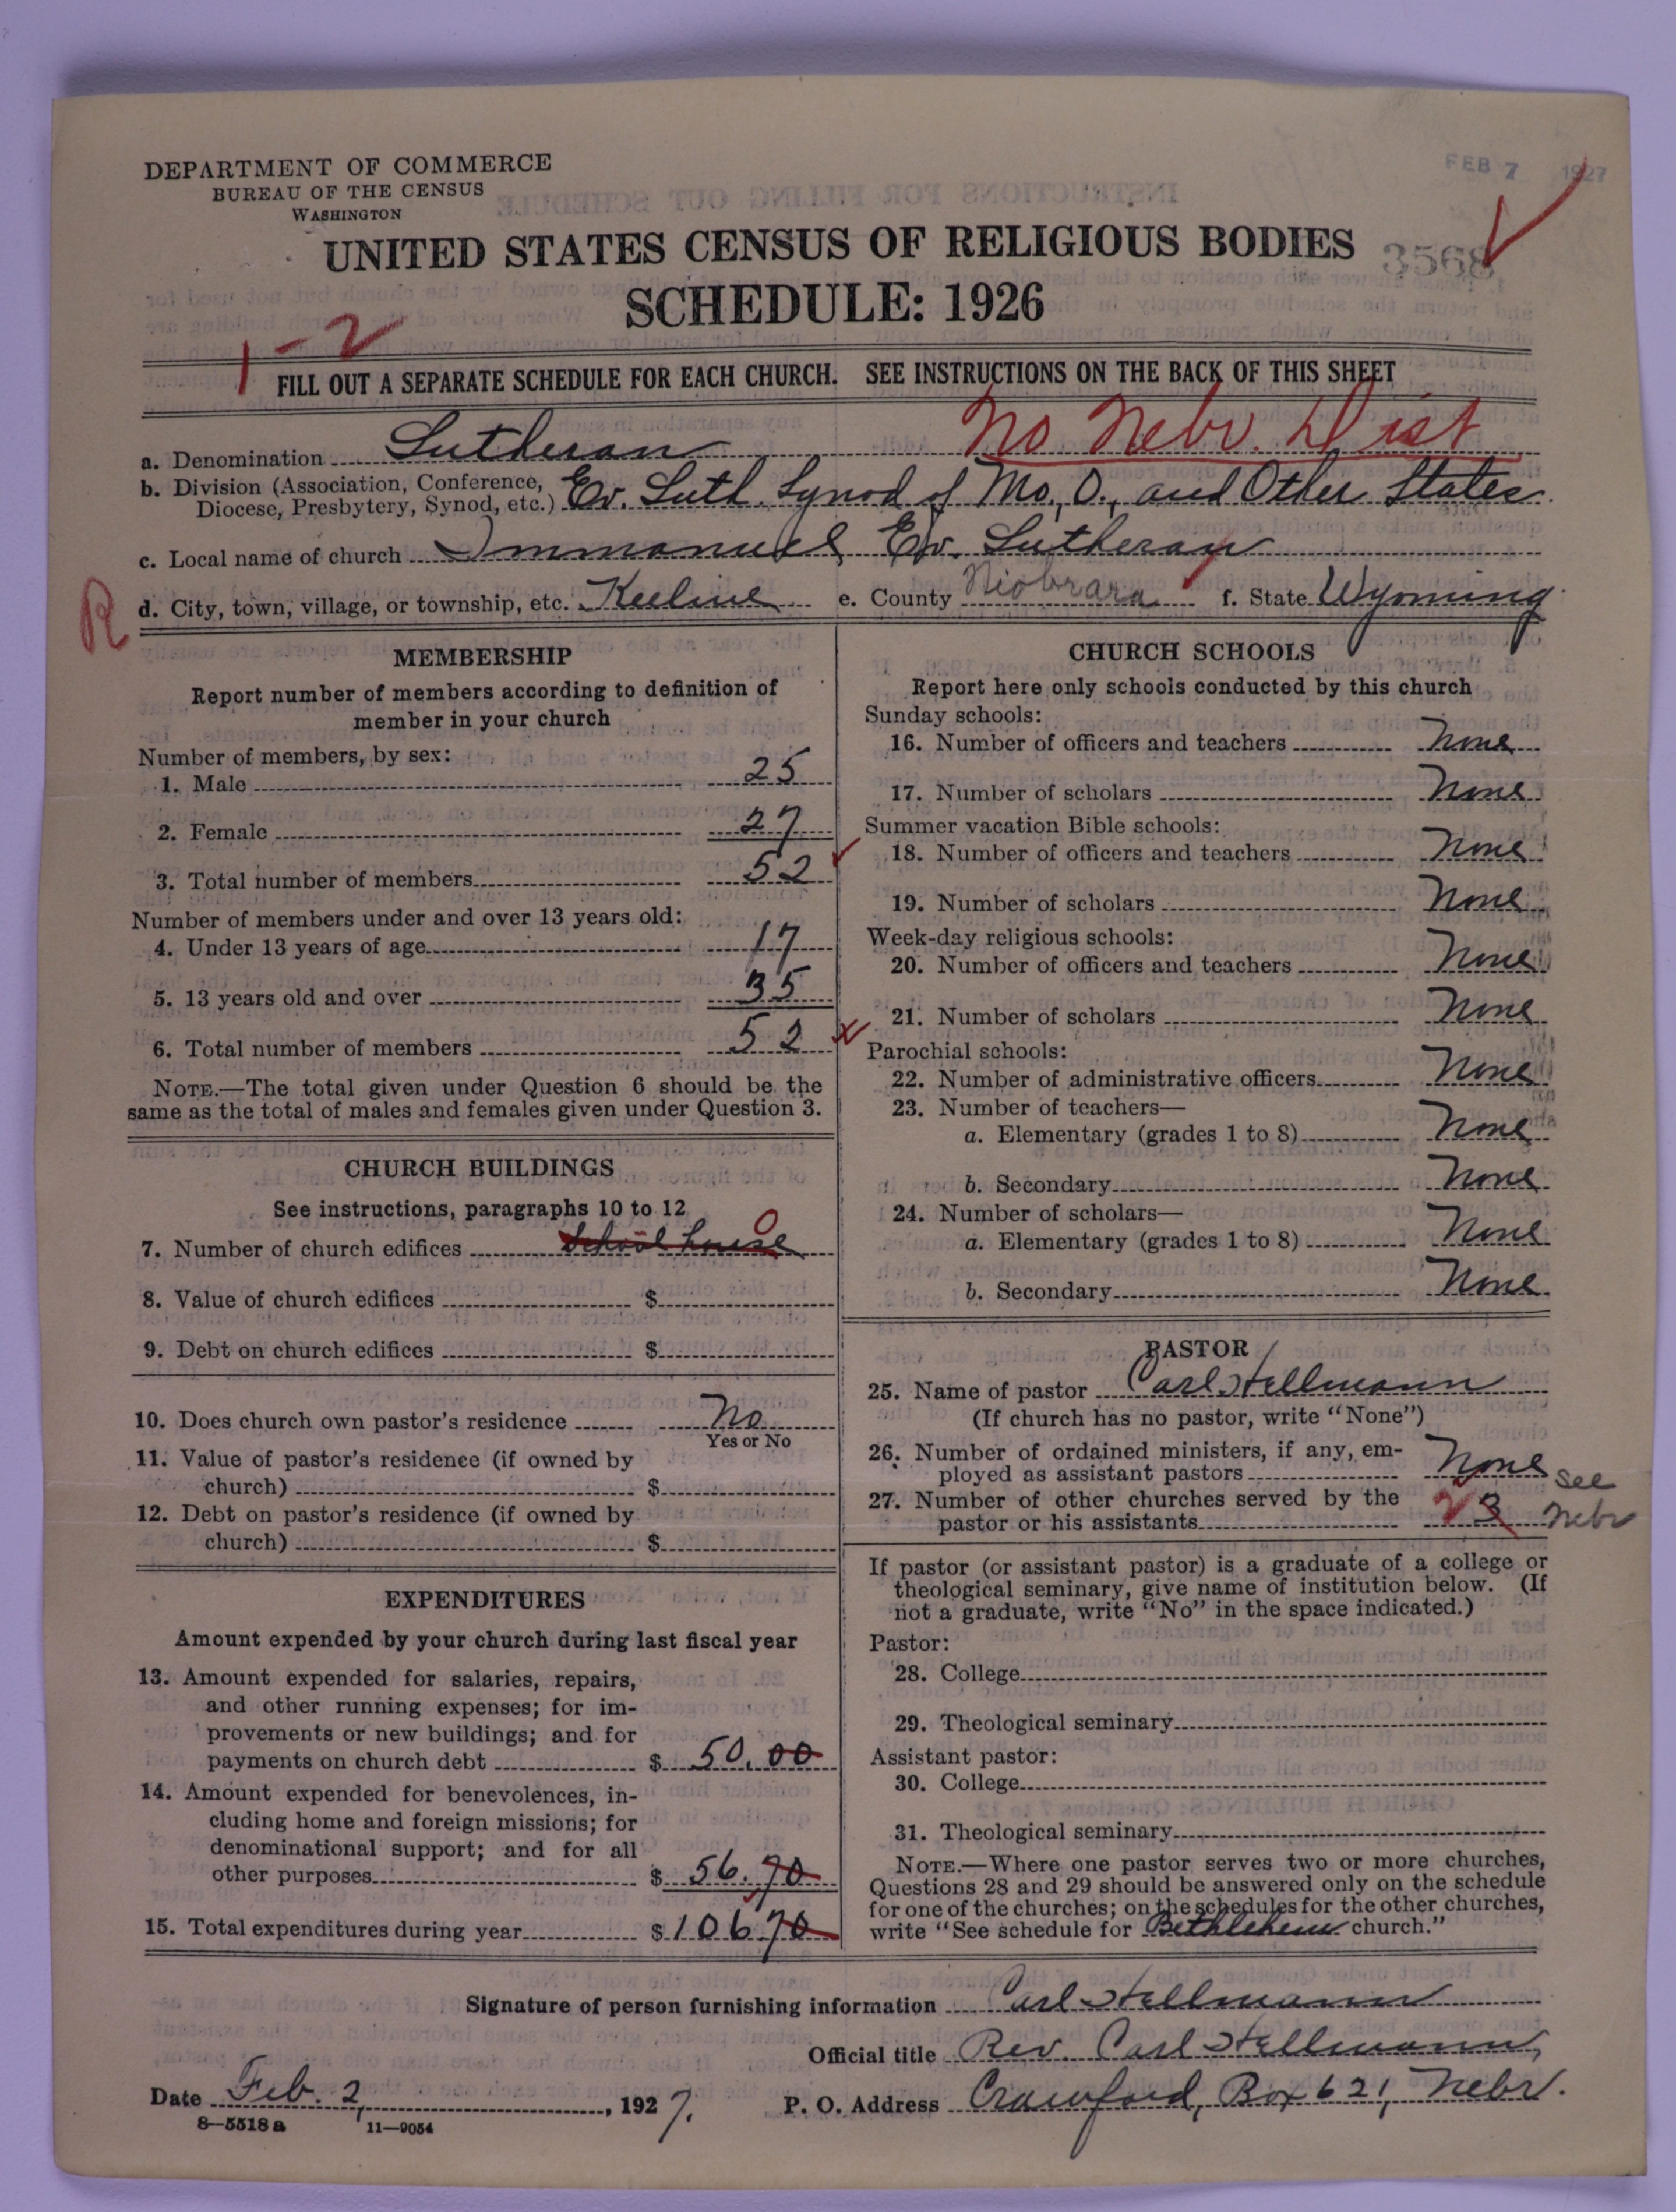 FEB 7 1927
DEPARTMENT OF COMMERCE
BUREAU OF THE CENSUS
WASHINGTON
UNITED STATES CENSUS OF RELIGIOUS BODIES
3568
SCHEDULE: 1926
1-2
FILL OUT A SEPARATE SCHEDULE FOR EACH CHURCH. SEE INSTRUCTIONS ON THE BACK OF THIS SHEET
No Nebr. Dist
a. Denomination Lutheran
b. Division (Association, Conference, Diocese, Presbytery, Synod, etc.) Ev. Luth. Synod of Mo., O., and Other States.
c. Local name of church Immanuel Ev. Lutheran
R d. City, town, village, or township, etc. Keeline e. County Niobrara f. State Wyoming
MEMBERSHIP
Report number of members according to definition of
member in your church
Number of members, by sex:
1. Male 25
2. Female 27
3. Total number of members 52
Number of members under and over 13 years old:
4. Under 13 years of age 17
5. 13 years old and over 35
6. Total number of members 52
NOTE.—The total given under Question 6 should be the
same as the total of males and females given under Question 3.
CHURCH BUILDINGS
See instructions, paragraphs 10 to 12
7. Number of church edifices School house 0
8. Value of church edifices $
9. Debt on church edifices $
10. Does church own pastor's residence No
Yes or No
11. Value of pastor's residence (if owned by
church) $
12. Debt on pastor's residence (if owned by
church) $
EXPENDITURES
Amount expended by your church during last fiscal year
13. Amount expended for salaries, repairs,
and other running expenses; for im-
provements or new buildings; and for
payments on church debt $ 50.00
14. Amount expended for benevolences, in-
cluding home and foreign missions; for
denominational support; and for all
other purposes $ 56.70
15. Total expenditures during year $ 106.70
CHURCH SCHOOLS
Report here only schools conducted by this church
Sunday schools:
16. Number of officers and teachers None
17. Number of scholars None
Summer vacation Bible schools:
18. Number of officers and teachers None
19. Number of scholars None
Week-day religious schools:
20. Number of officers and teachers None
21. Number of scholars None
Parochial schools:
22. Number of administrative officers None
23. Number of teachers—
a. Elementary (grades 1 to 8) None
b. Secondary None
24. Number of scholars—
a. Elementary (grades 1 to 8) None
b. Secondary None
PASTOR
25. Name of pastor Carl Hellmann
(If church has no pastor, write "None")
26. Number of ordained ministers, if any, em-
ployed as assistant pastors None see
27. Number of other churches served by the
pastor or his assistants 2 3 Nebr
If pastor (or assistant pastor) is a graduate of a college or
theological seminary, give name of institution below. (If
not a graduate, write "No" in the space indicated.)
Pastor:
28. College
29. Theological seminary
Assistant pastor:
30. College
31. Theological seminary
NOTE.—Where one pastor serves two or more churches,
Questions 28 and 29 should be answered only on the schedule
for one of the churches; on the schedules for the other churches,
write "See schedule for Bethlehem church."
Signature of person furnishing information Carl Hellmann
Official title Rev. Carl Hellmann,
Date Feb. 2, 1927. P. O. Address Crawford, Box 621, Nebr.
8-5518 a 11-9054